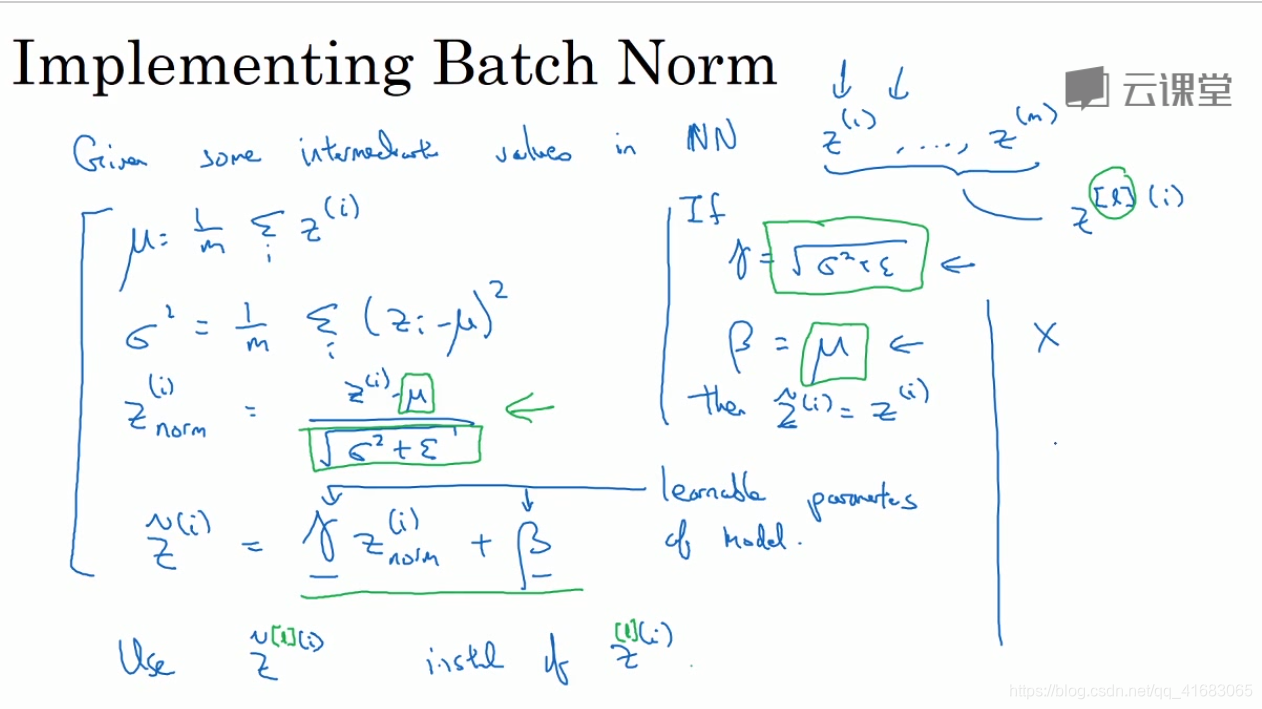 Implementing Batch Norm
云课堂
Given some intermediate values in NN z^(i), ...., z^(m)
z^[l](i)
μ = 1/m Σ_i z^(i)
σ² = 1/m Σ_i (z_i - μ)²
z^(i)_norm = (z^(i) - μ) / √(σ² + ε)
z̃^(i) = γ z^(i)_norm + β
If
γ = √(σ² + ε) ←
β = μ ←
then z̃^(i) = z^(i)
learnable parameters
of model.
X
Use z̃^[l](i) instead of z^[l](i).
https://blog.csdn.net/qq_41683065